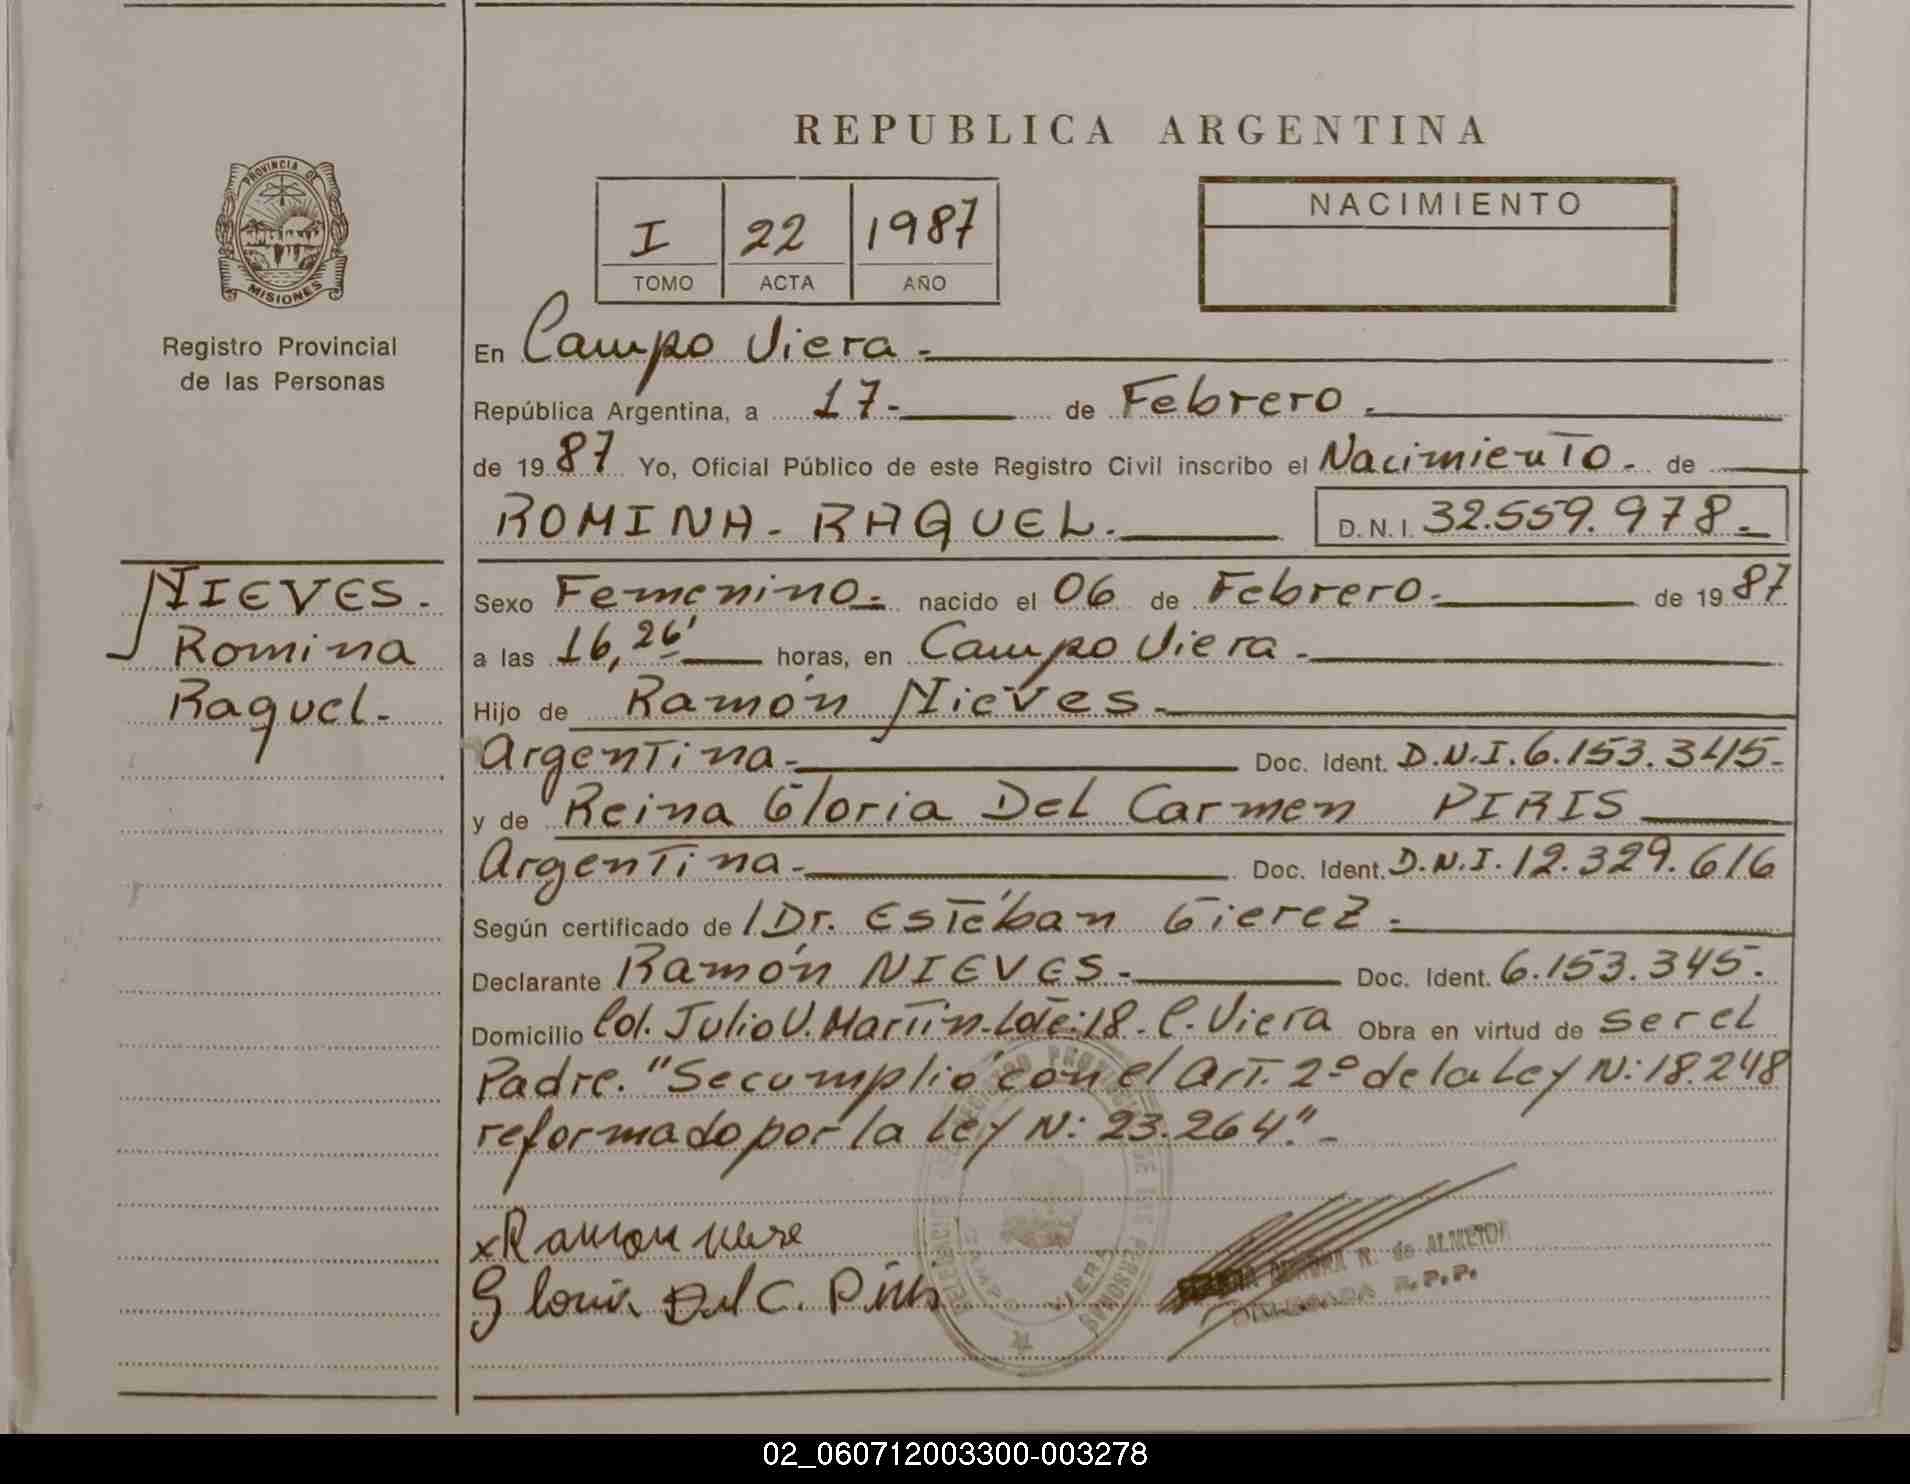 REPUBLICA ARGENTINA
PROVINCIA DE
MISIONES
Registro Provincial
de las Personas
I 22 1987
TOMO ACTA AÑO
NACIMIENTO
En Campo Viera.-
República Argentina, a 17.- de Febrero.
de 1987 Yo, Oficial Público de este Registro Civil inscribo el Nacimiento. de
ROMINA - RAQUEL. D.N.I. 32.559.978.-
NIEVES.
Romina
Raquel.-
Sexo Femenino.- nacido el 06 de Febrero. de 1987
a las 16,26' horas, en Campo Viera.-
Hijo de Ramón Nieves.-
Argentina.- Doc. Ident. D.N.I. 6.153.345.-
y de Reina Gloria Del Carmen PIRIS
Argentina.- Doc. Ident. D.N.I. 12.329.616
Según certificado de / Dr. Estéban Gierez.-
Declarante Ramón NIEVES.- Doc. Ident. 6.153.345.
Domicilio Col. Julio U. Martín-Lote:18.C.Viera Obra en virtud de ser el
Padre. "Se cumplió con el Art. 2º de la Ley N: 18.248
reformado por la Ley N: 23.264".-
x Ramon
Gloria Del C. Piris
R. de ALMEIDA
DELEGADA R.P.P.
02_060712003300-003278